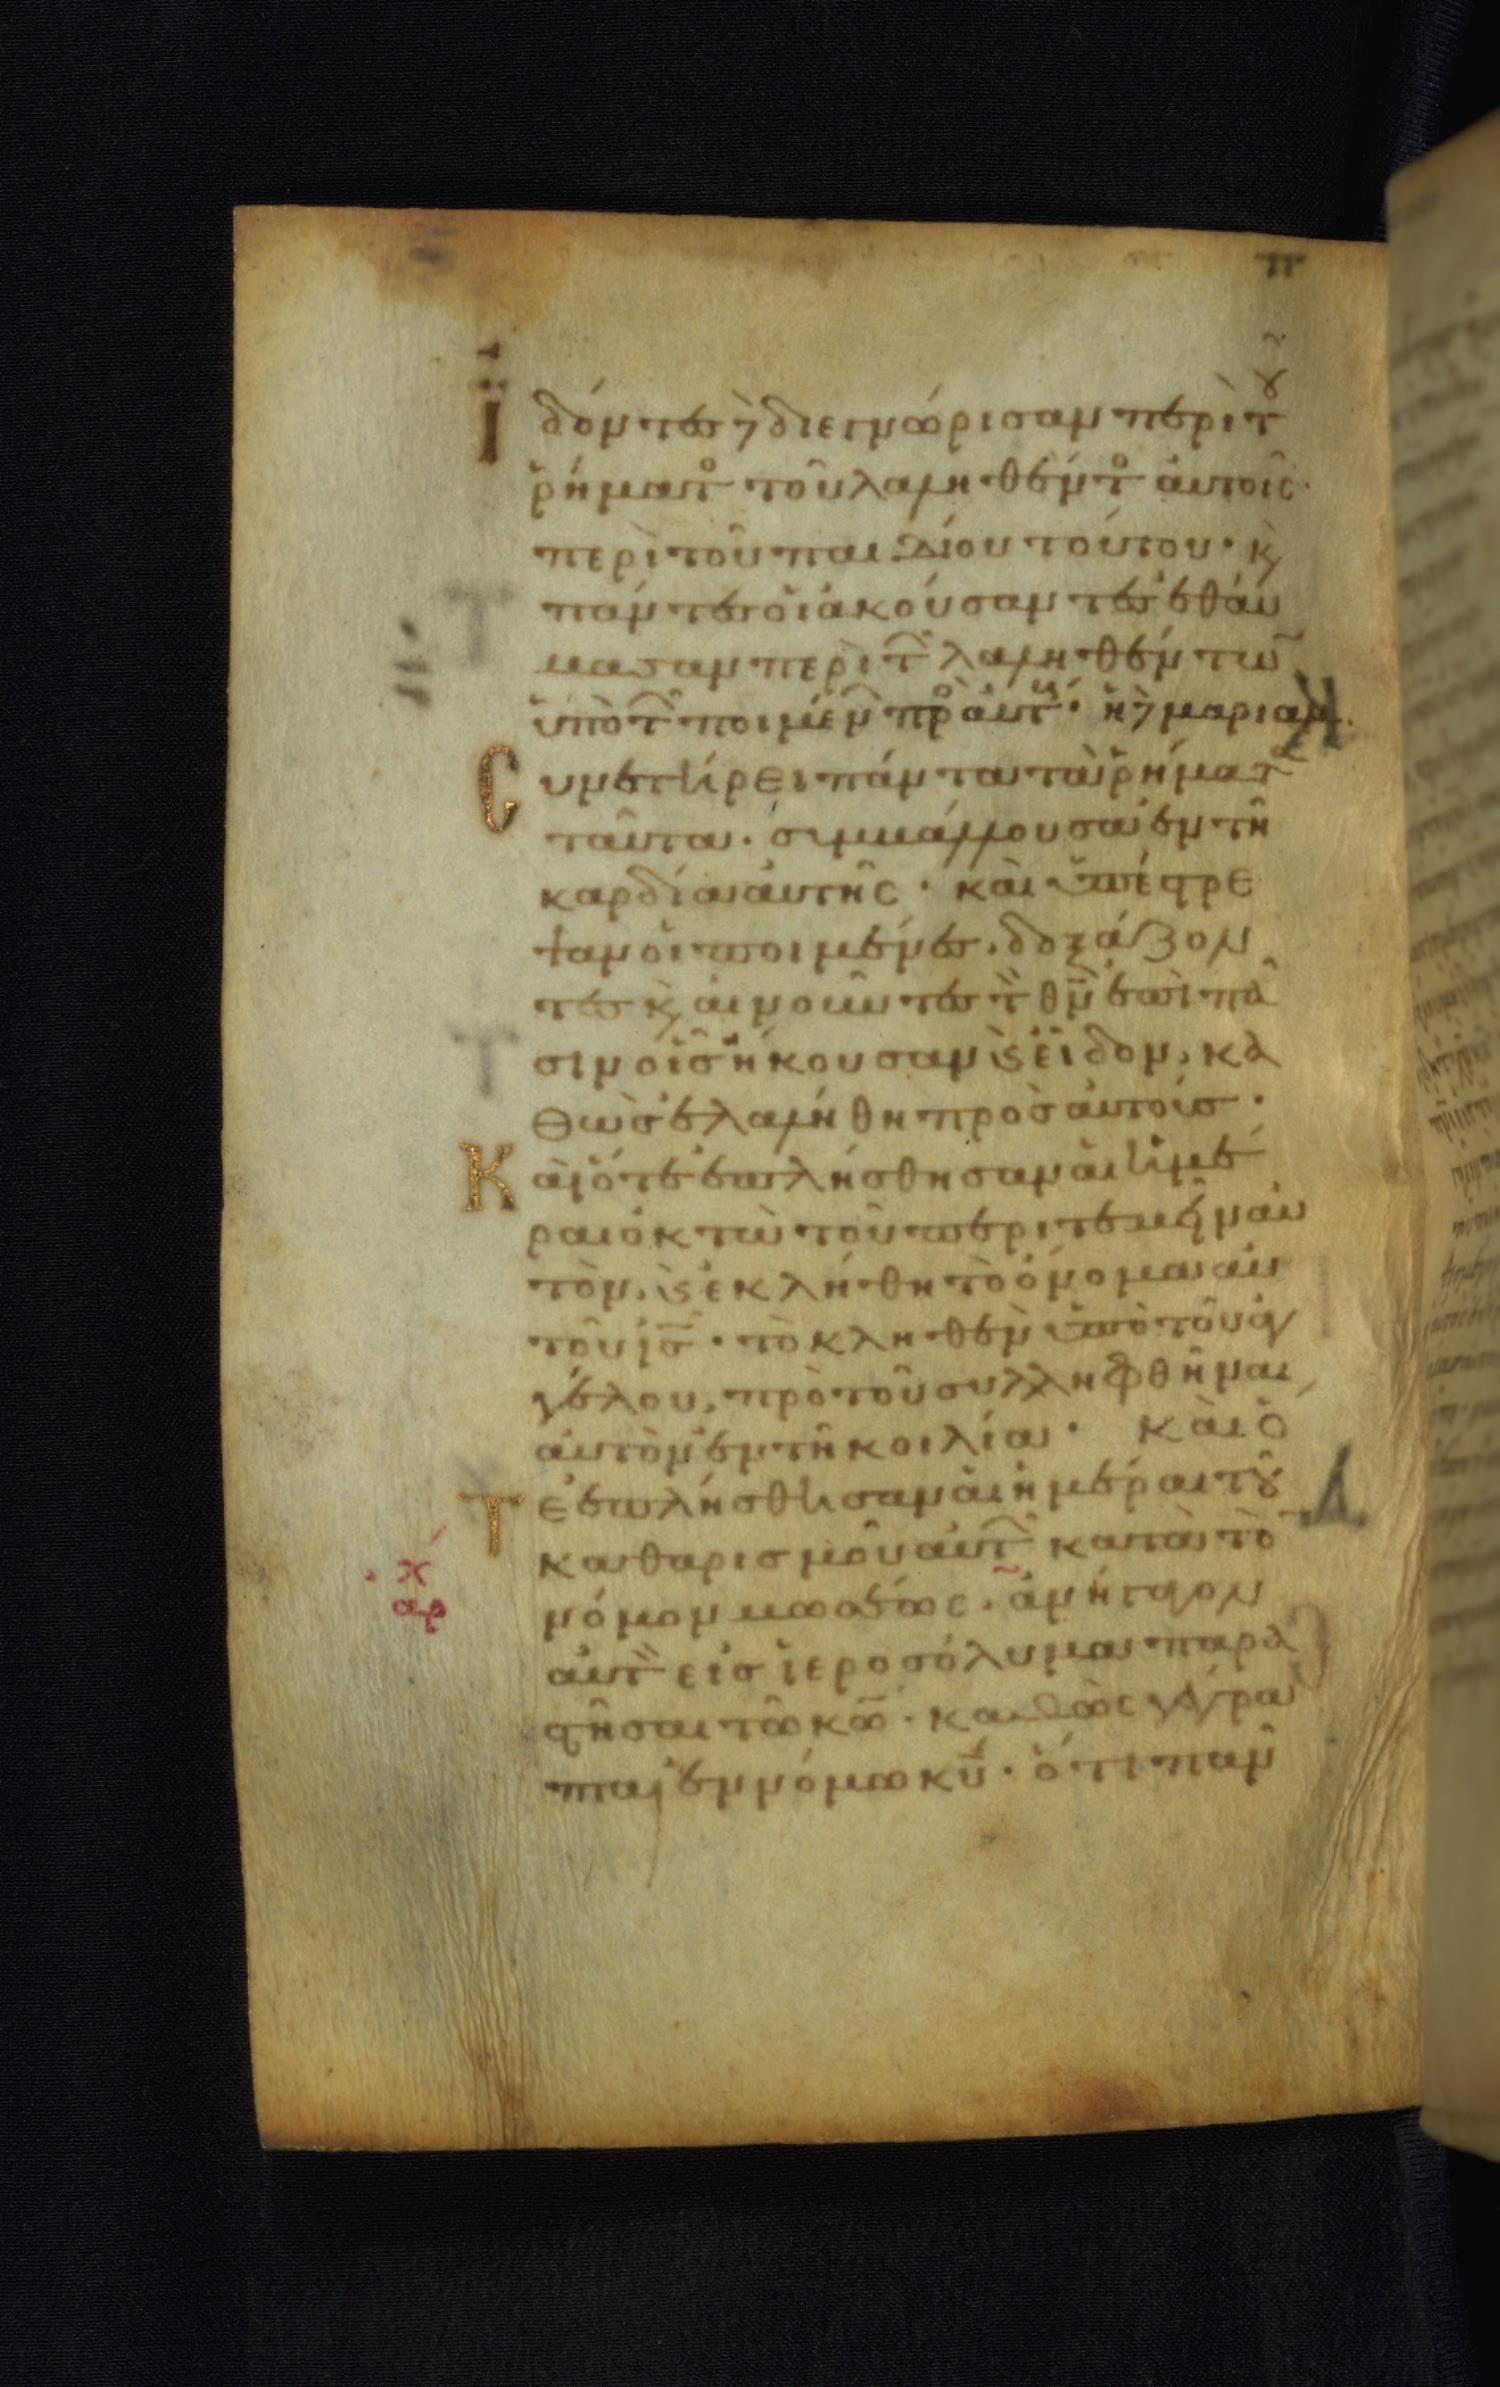 Ἰδόντες δὲ διεγνώρισαν περὶ τοῦ
ῥήματος τοῦ λαληθέντος αὐτοῖς·
περὶ τοῦ παιδίου τούτου· κ
πάντες οἱ ἀκούσαντες ἐθαύ
μασαν περὶ τῶν λαληθέντων
ὑπὸ τῶν ποιμένων πρὸς αὐτούς· ἡ δὲ μαριὰμ
Συνετήρει πάντα τὰ ῥήματα
ταῦτα· συμβάλλουσα ἐν τῆ
καρδία αὐτῆς· καὶ ὑπέστρε
ψαν οἱ ποιμένες, δοξάζον
τες κ αἰνοῦντες τὸν θν ἐπὶ πᾶ
σιν οἷς ἤκουσαν κ εἶδον, κα
θὼς ἐλαλήθη πρὸς αὐτούς·
Καὶ ὅτε ἐπλήσθησαν αἱ ἡμέ
ραι ὀκτὼ τοῦ περιτεμεῖν αὐ
τόν, κ ἐκλήθη τὸ ὄνομα αὐ
τοῦ ις· τὸ κληθὲν ὑπὸ τοῦ ἀγ
γέλου, πρὸ τοῦ συλληφθῆναι
αὐτὸν ἐν τῆ κοιλία· Καὶ ὅ
Τε ἐπλήσθησαν αἱ ἡμέραι τοῦ
καθαρισμοῦ αὐτῶν κατὰ τὸν
χ
αρ
νόμον μωσέως· ἀνήγαγον
αὐτὸν εἰς ἱεροσόλυμα παρα
στῆσαι τῶ κω· καθὼς γέγρα
πται ἐν νόμω κυ· ὅτι πᾶν